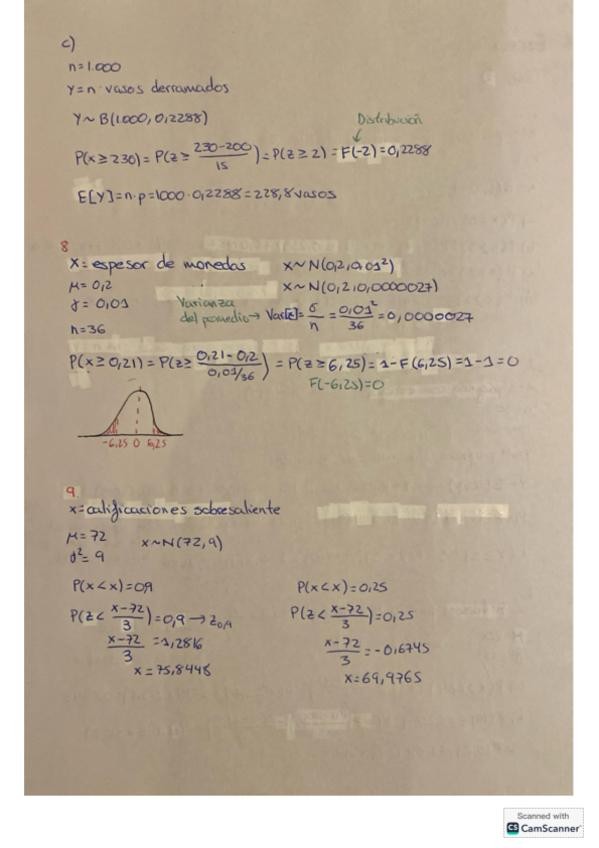 c)
n=1.000
Y=nº vasos derramados
Y~B(1.000, 0,2288)
Distribución
P(x≥230)=P(z≥ 230-200/15)=P(z≥2)=F(-2)=0,2288
E[Y]=n·p=1000·0,2288=228,8 vasos
8
X=espesor de monedas x~N(0,2, 0,01²)
μ=0,2 x~N(0,2, 0,0000027)
γ=0,01 Varianza del promedio→ Var[x̄]=σ/n=0,01²/36=0,0000027
n=36
P(x≥0,21)=P(z≥ 0,21-0,2/0,01/36)=P(z≥6,25)=1-F(6,25)=1-1=0
F(-6,25)=0
-6,25 0 6,25
9.
x=calificaciones sobresaliente
μ=72 x~N(72,9)
σ²=9
P(x<x)=0,9 P(x<x)=0,25
P(z< x-72/3)=0,9→z0,9 P(z< x-72/3)=0,25
x-72/3=1,2816 x-72/3=-0,6745
x=75,8448 x=69,9765
Scanned with
CS CamScanner